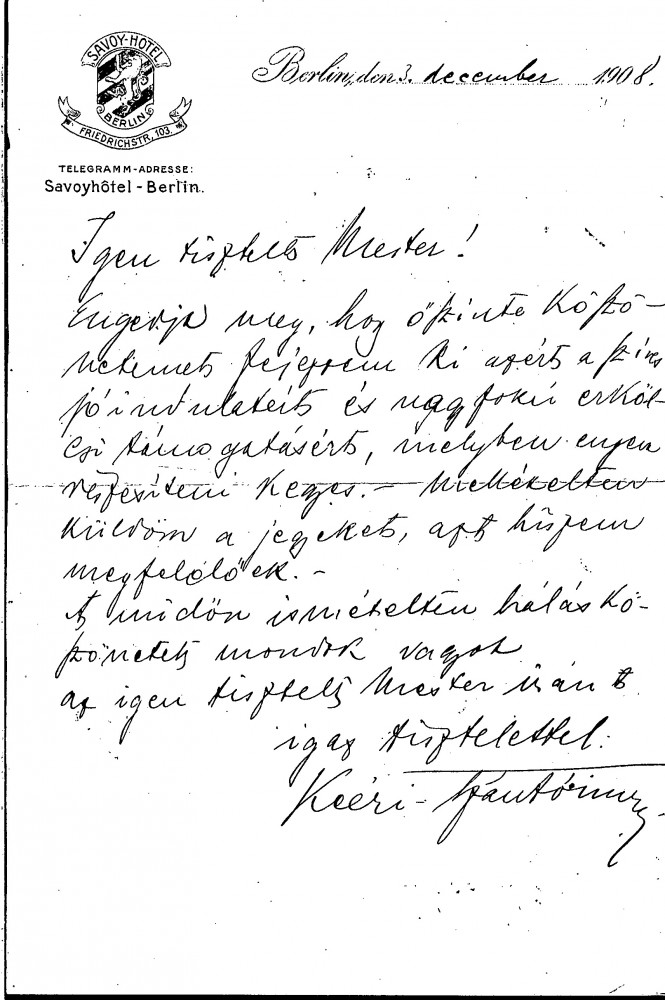 SAVOY-HOTEL
BERLIN
FRIEDRICHSTR, 103.
TELEGRAMM-ADRESSE:
Savoyhôtel - Berlin.
Berlin, den 3. december 1908.
Igen tisztelt Mester!
Engedje meg, hog őszinte köszö-
netemet fejezzem ki azért a szíves
jóindulatért és nagyfokú erköl-
csi támogatásért, melyben engem
részesíteni kegyes. — Mellékelten
küldöm a jegyeket, azt hiszem
megfelelőek. –
A midőn ismételten hálás kö-
szönetet mondok vagyok
az igen tisztelt Mester iránt
igaz tisztelettel:
Kéri-Szántó Imre